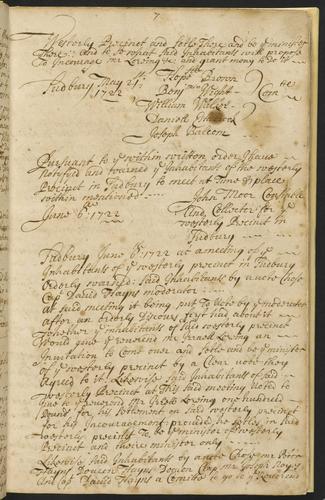 7
Westerly Precinct and setle There and be yͤ minister
There: and to request said Inhabitants will propose
to Incourage mr Loring &c: and grant mony to do it
Sudbury May 21: Hopstill Brown
1722 Benj Wight Comtte
William Walker
Daniell Estabrook
Joseph Balcom
Pursuant to yͤ within written order I have
Notefyd and warned yͤ Inhabitants of the westerly
Precinct in Sudbury to meet at time & place
within mentioned
John Moor Constable
June 6: 1722 And Collector for yͤ
westerly Precinct in
Sudbury
Sudbury June 6: 1722 at a meeting of yͤ
Inhabitants of yͤ westerly precinct in Sudbury
orderly warned: said Inhabitants by a vote chose
Cap David Haynes moderator
at said meeting it being put To vote by yͤ moderator
after an orderly Discours first had about it
whether yͤ Inhabitants of said westerly precinct
Would give yͤ reverend mr Israel Loring an
Invitation to Come over and Setle and be yͤ minister
of yͤ westerly precinct by a Clear vote they
Agreed to it. Likewise said Inhabitants of said
westerly Precinct at This said meeting voted to
Give yͤ Reverend Mr Israel Loring one hundred
pounds for his Setlement on said westerly precinct
for his Incouragement: provided he setles in said
westerly precinct To be yͤ minister of westerly
Precinct and there minister only
Likewise said Inhabitants by a vote Chose mr Peter
Haynes Deacon Clap mr Joseph Noyes
and Cap David Haynes a Comitte to go to yͤ reverend